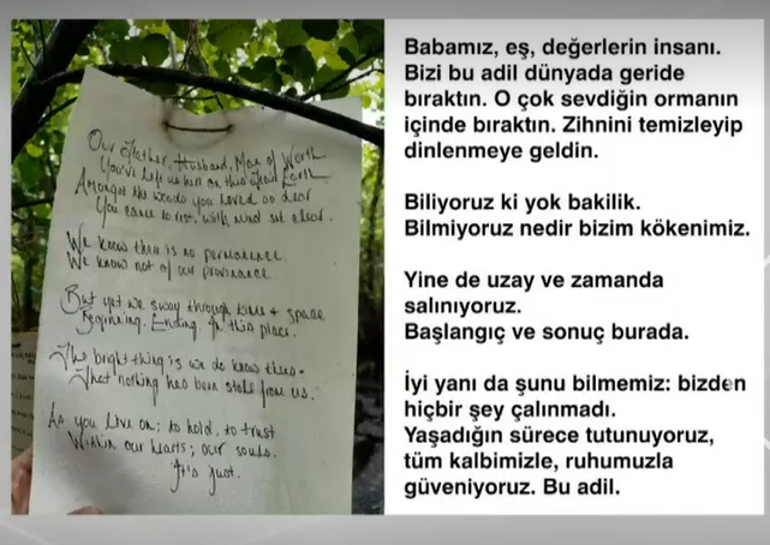 Our Father, Husband, Man of Worth
You've left us here on this Fair Earth
Amongst the woods you loved so dear
You came to rest, with mind set clear.
We know there is no permanence.
We know not of our provinance
But yet we sway through time + space
Beginning. Ending in this place.
The bright thing is we do know this -
That nothing has been stole from us.
As you live on; to hold, to trust
Within our hearts; our souls.
It's just.
Babamız, eş, değerlerin insanı.
Bizi bu adil dünyada geride
bıraktın. O çok sevdiğin ormanın
içinde bıraktın. Zihnini temizleyip
dinlenmeye geldin.
Biliyoruz ki yok bakilik.
Bilmiyoruz nedir bizim kökenimiz.
Yine de uzay ve zamanda
salınıyoruz.
Başlangıç ve sonuç burada.
İyi yanı da şunu bilmemiz: bizden
hiçbir şey çalınmadı.
Yaşadığın sürece tutunuyoruz,
tüm kalbimizle, ruhumuzla
güveniyoruz. Bu adil.